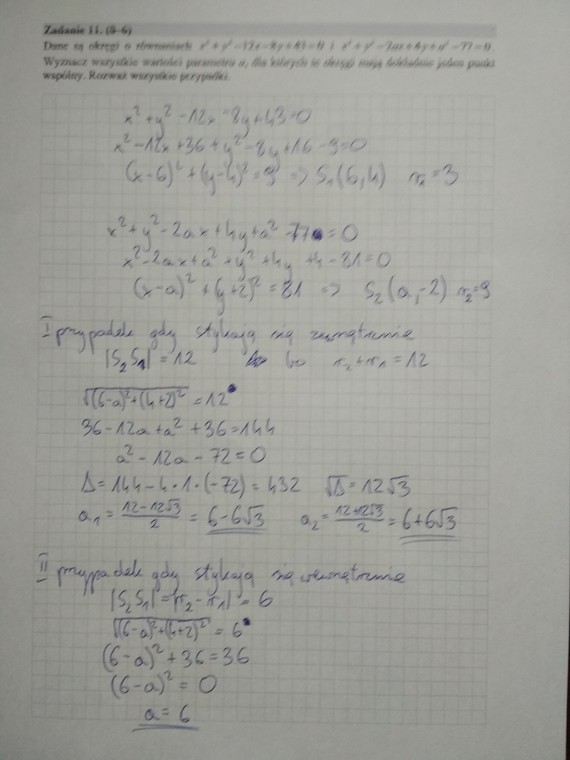 Zadanie 11. (0–6)
Dane są okręgi o równaniach x² + y² −12x −8y + 43 = 0 i x² + y² −2ax + 4y + a² −77 = 0.
Wyznacz wszystkie wartości parametru a, dla których te okręgi mają dokładnie jeden punkt
wspólny. Rozważ wszystkie przypadki.
x² + y² - 12x - 8y + 43 = 0
x² - 12x + 36 + y² - 8y + 16 - 9 = 0
(x-6)² + (y-4)² = 9 => S₁(6,4) r₁ = 3
x² + y² - 2ax + 4y + a² - 77 = 0
x² - 2ax + a² + y² + 4y + 4 - 81 = 0
(x-a)² + (y+2)² = 81 => S₂(a,-2) r₂=9
I przypadek gdy stykają się zewnętrznie
|S₂S₁| = 12 bo r₂+r₁ = 12
√(6-a)²+(4+2)² = 12
36-12a+a² + 36 = 144
a² - 12a - 72 = 0
Δ = 144 - 4·1·(-72) = 432 √Δ = 12√3
a₁ = (12-12√3)/2 = 6-6√3 a₂ = (12+12√3)/2 = 6+6√3
II przypadek gdy stykają się wewnętrznie
|S₂S₁| = |r₂-r₁| = 6
√(6-a)²+(4+2)² = 6
(6-a)² + 36 = 36
(6-a)² = 0
a = 6